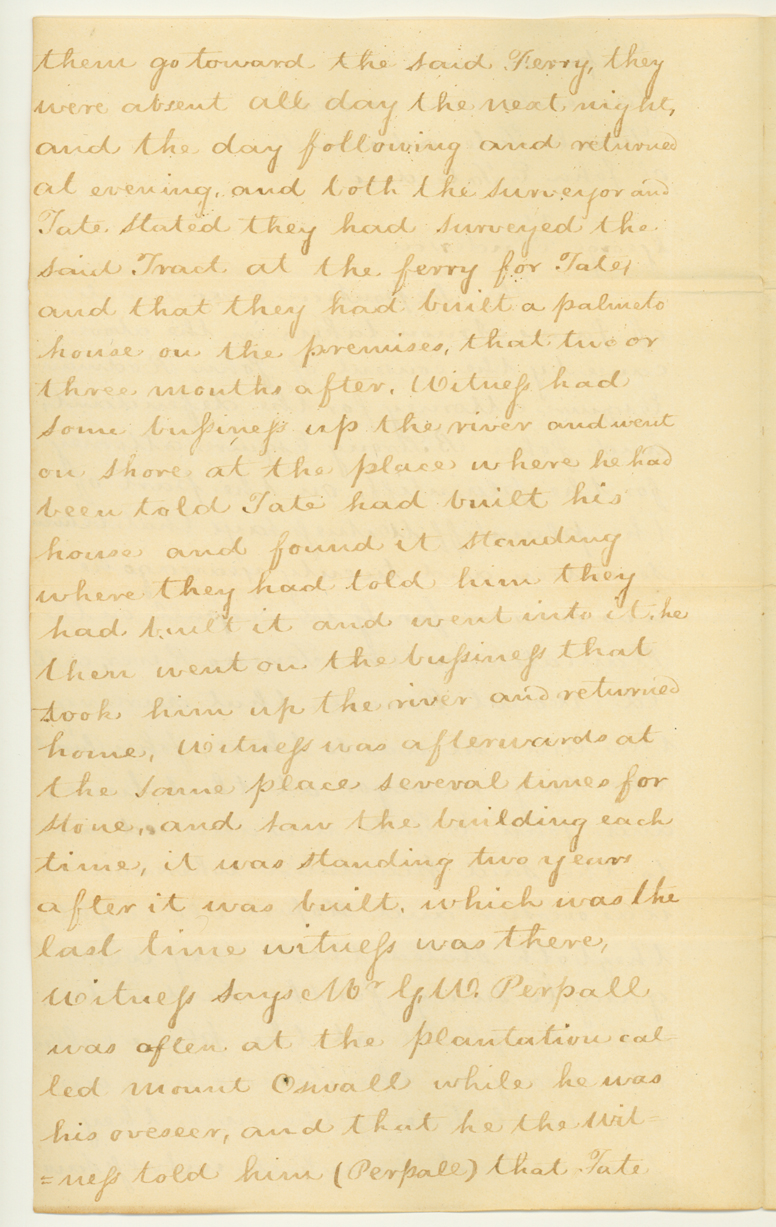 them go toward the said Ferry, they
were absent all day the next night,
and the day following and returned
at evening, and both the surveyor and
Tate stated they had surveyed the
said Tract at the ferry for Tate,
and that they had built a palmeto
house on the premises, that two or
three months after, Witness had
some bussiness up the river and went
on shore at the place where he had
been told Tate had built his
house and found it standing
where they had told him they
had built it and went into it, he
then went on the bussiness that
took him up the river and returned
home, Witness was afterwards at
the same place several times for
stone, and saw the building each
time, it was standing two years
after it was built, which was the
last time witness was there,
Witness says Mr G. W. Perpall
was often at the plantation cal
led Mount Oswall while he was
his oveseer, and that he the Wit=
=ness told him (Perpall) that Tate